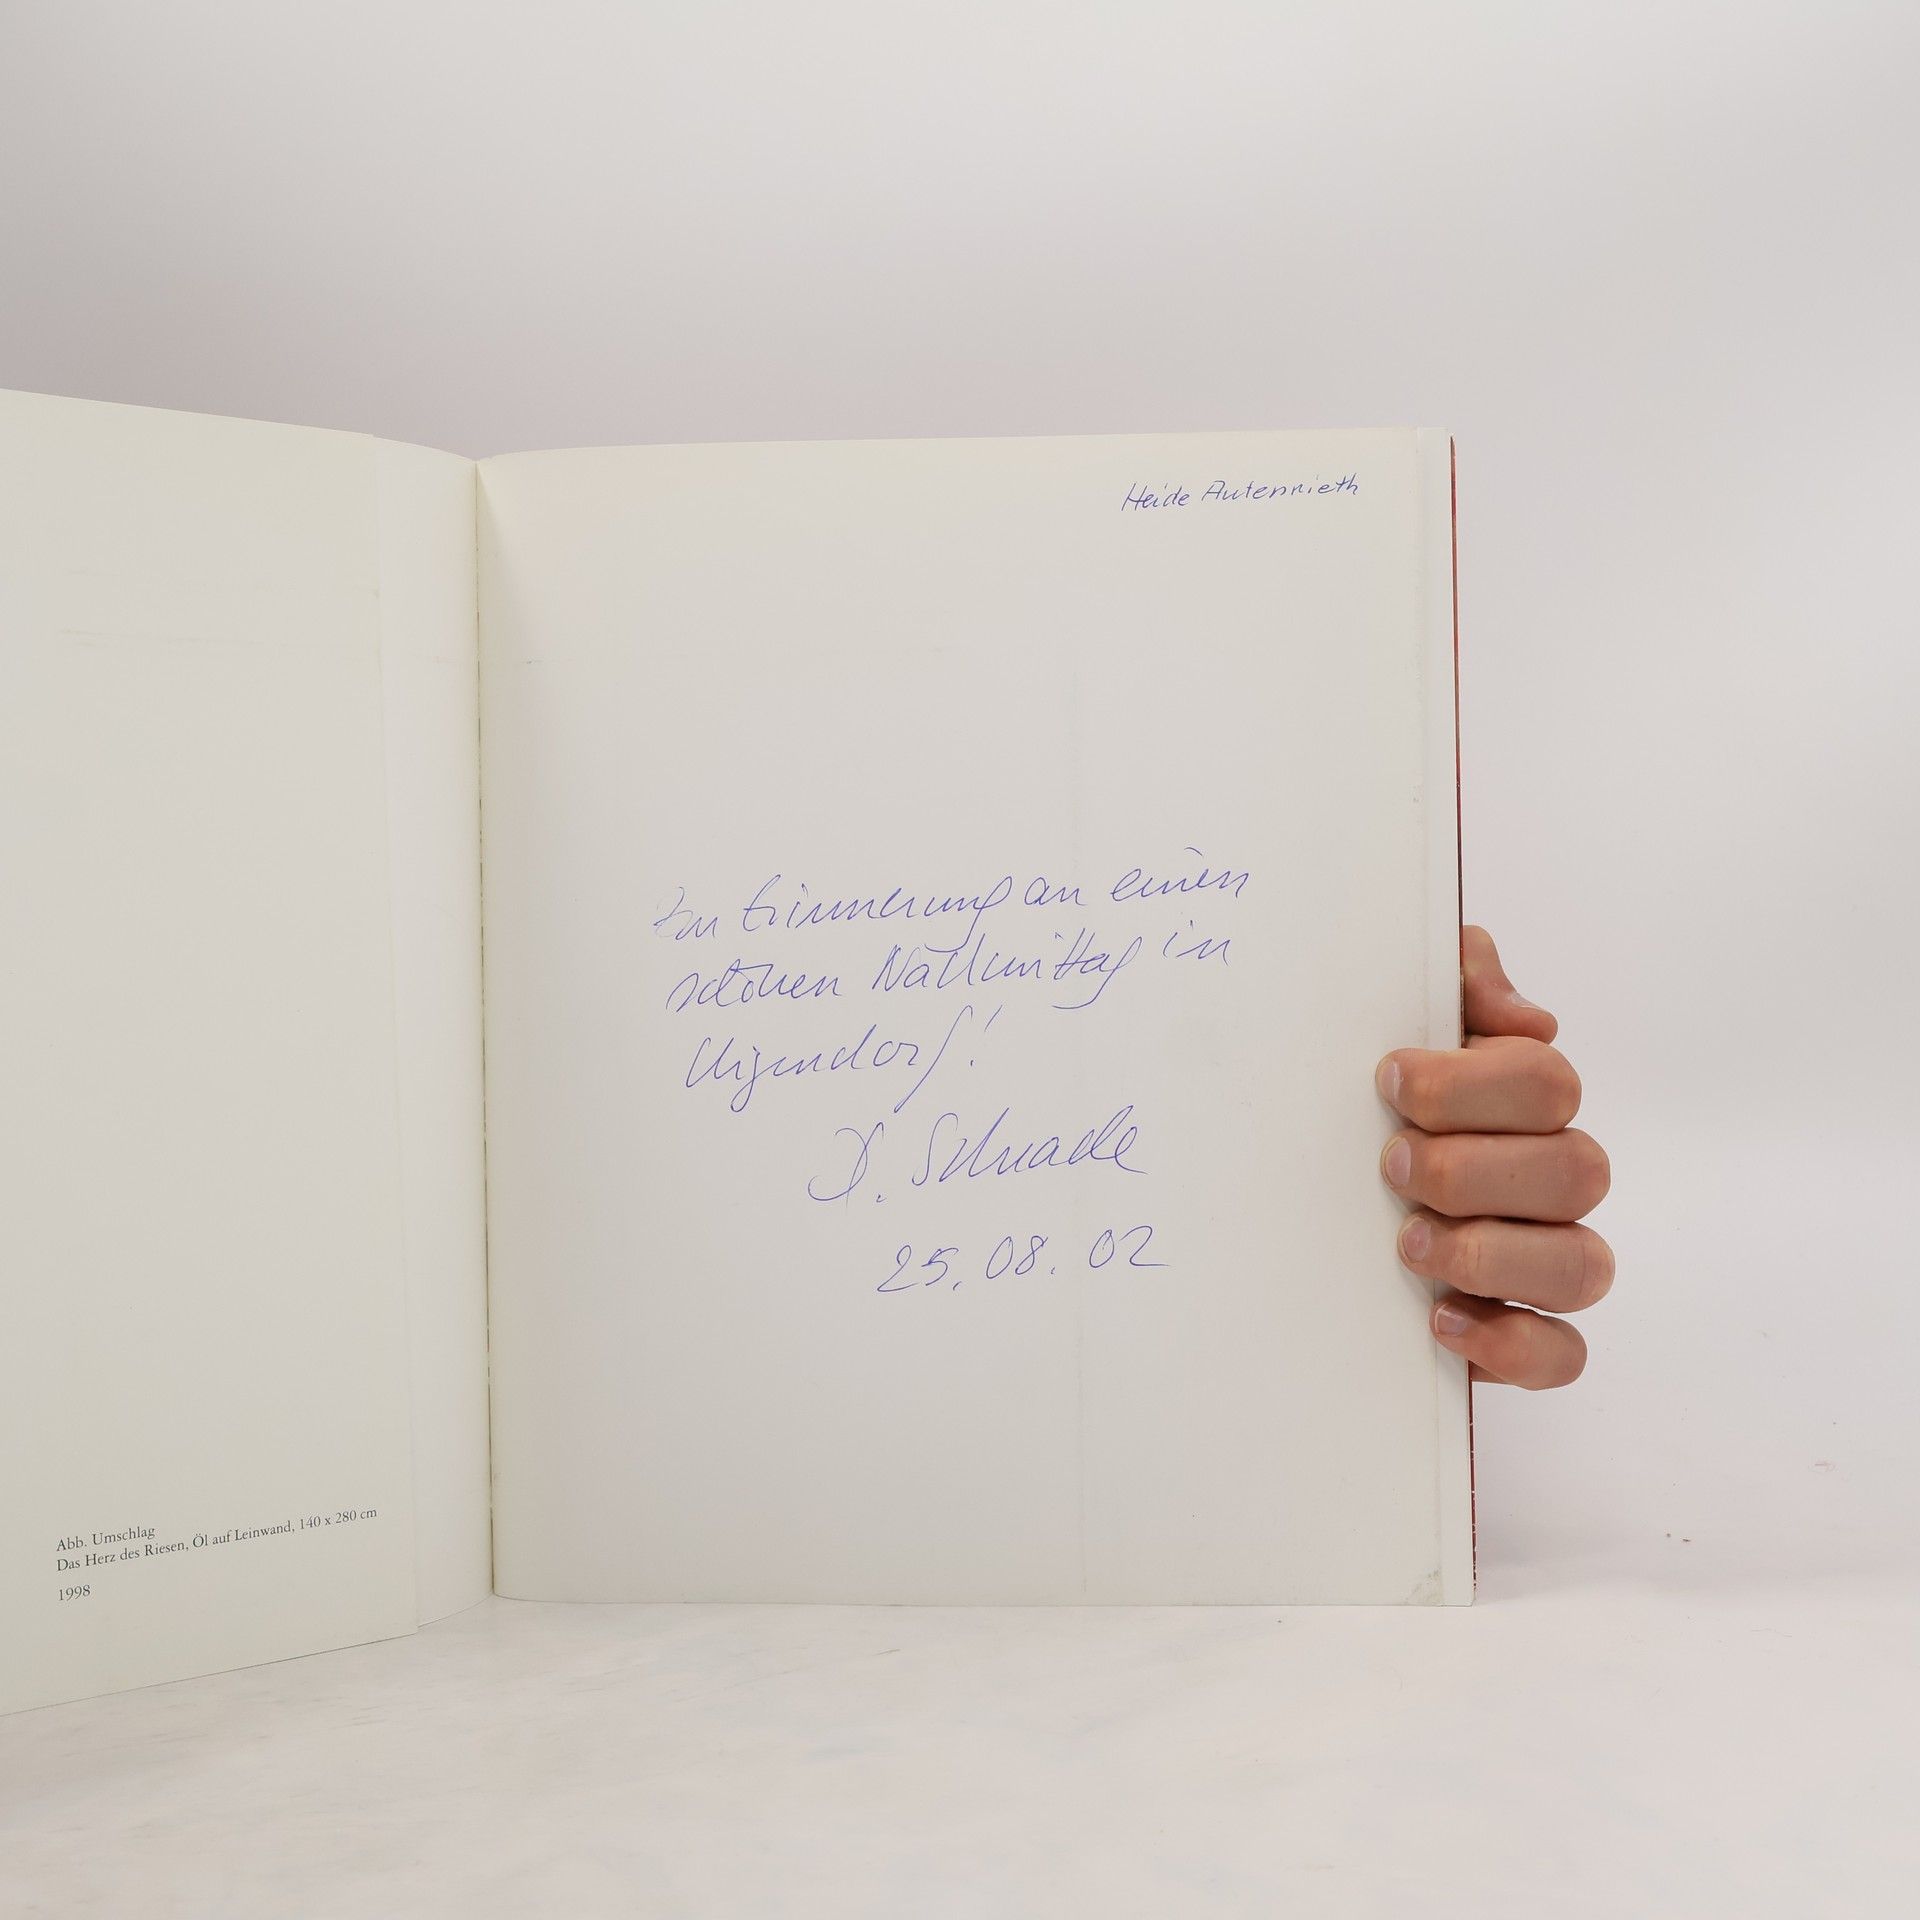 Abb. Umschlag
Das Herz des Riesen, Öl auf Leinwand, 140 x 280 cm
1998
Heide Autenrieth
Zur Erinnerung an einen
schönen Nachmittag in
D. Schrade
25.08.02